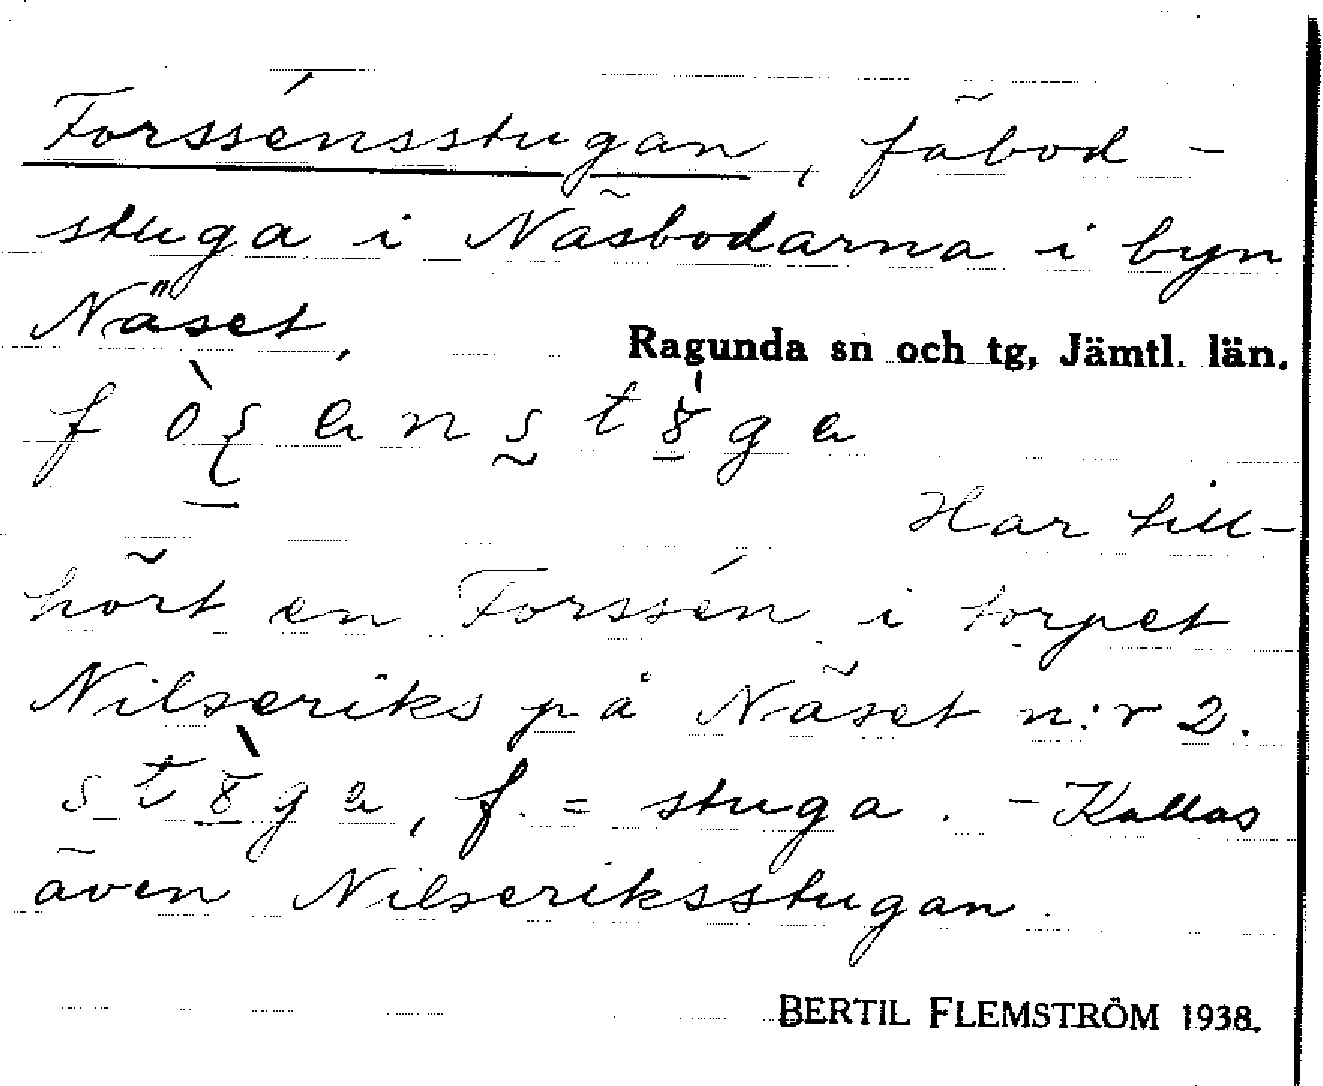 Forssénsstugan, fäbod-
stuga i Näsbodarna i byn
Näset,
Ragunda sn och tg, Jämtl. län.
Har till-
hört en Forssén i torpet
Nilseriks på Näset n:r 2.
f. = stuga. - Kallas
även Nilseriksstugan.
BERTIL FLEMSTRÖM 1938.